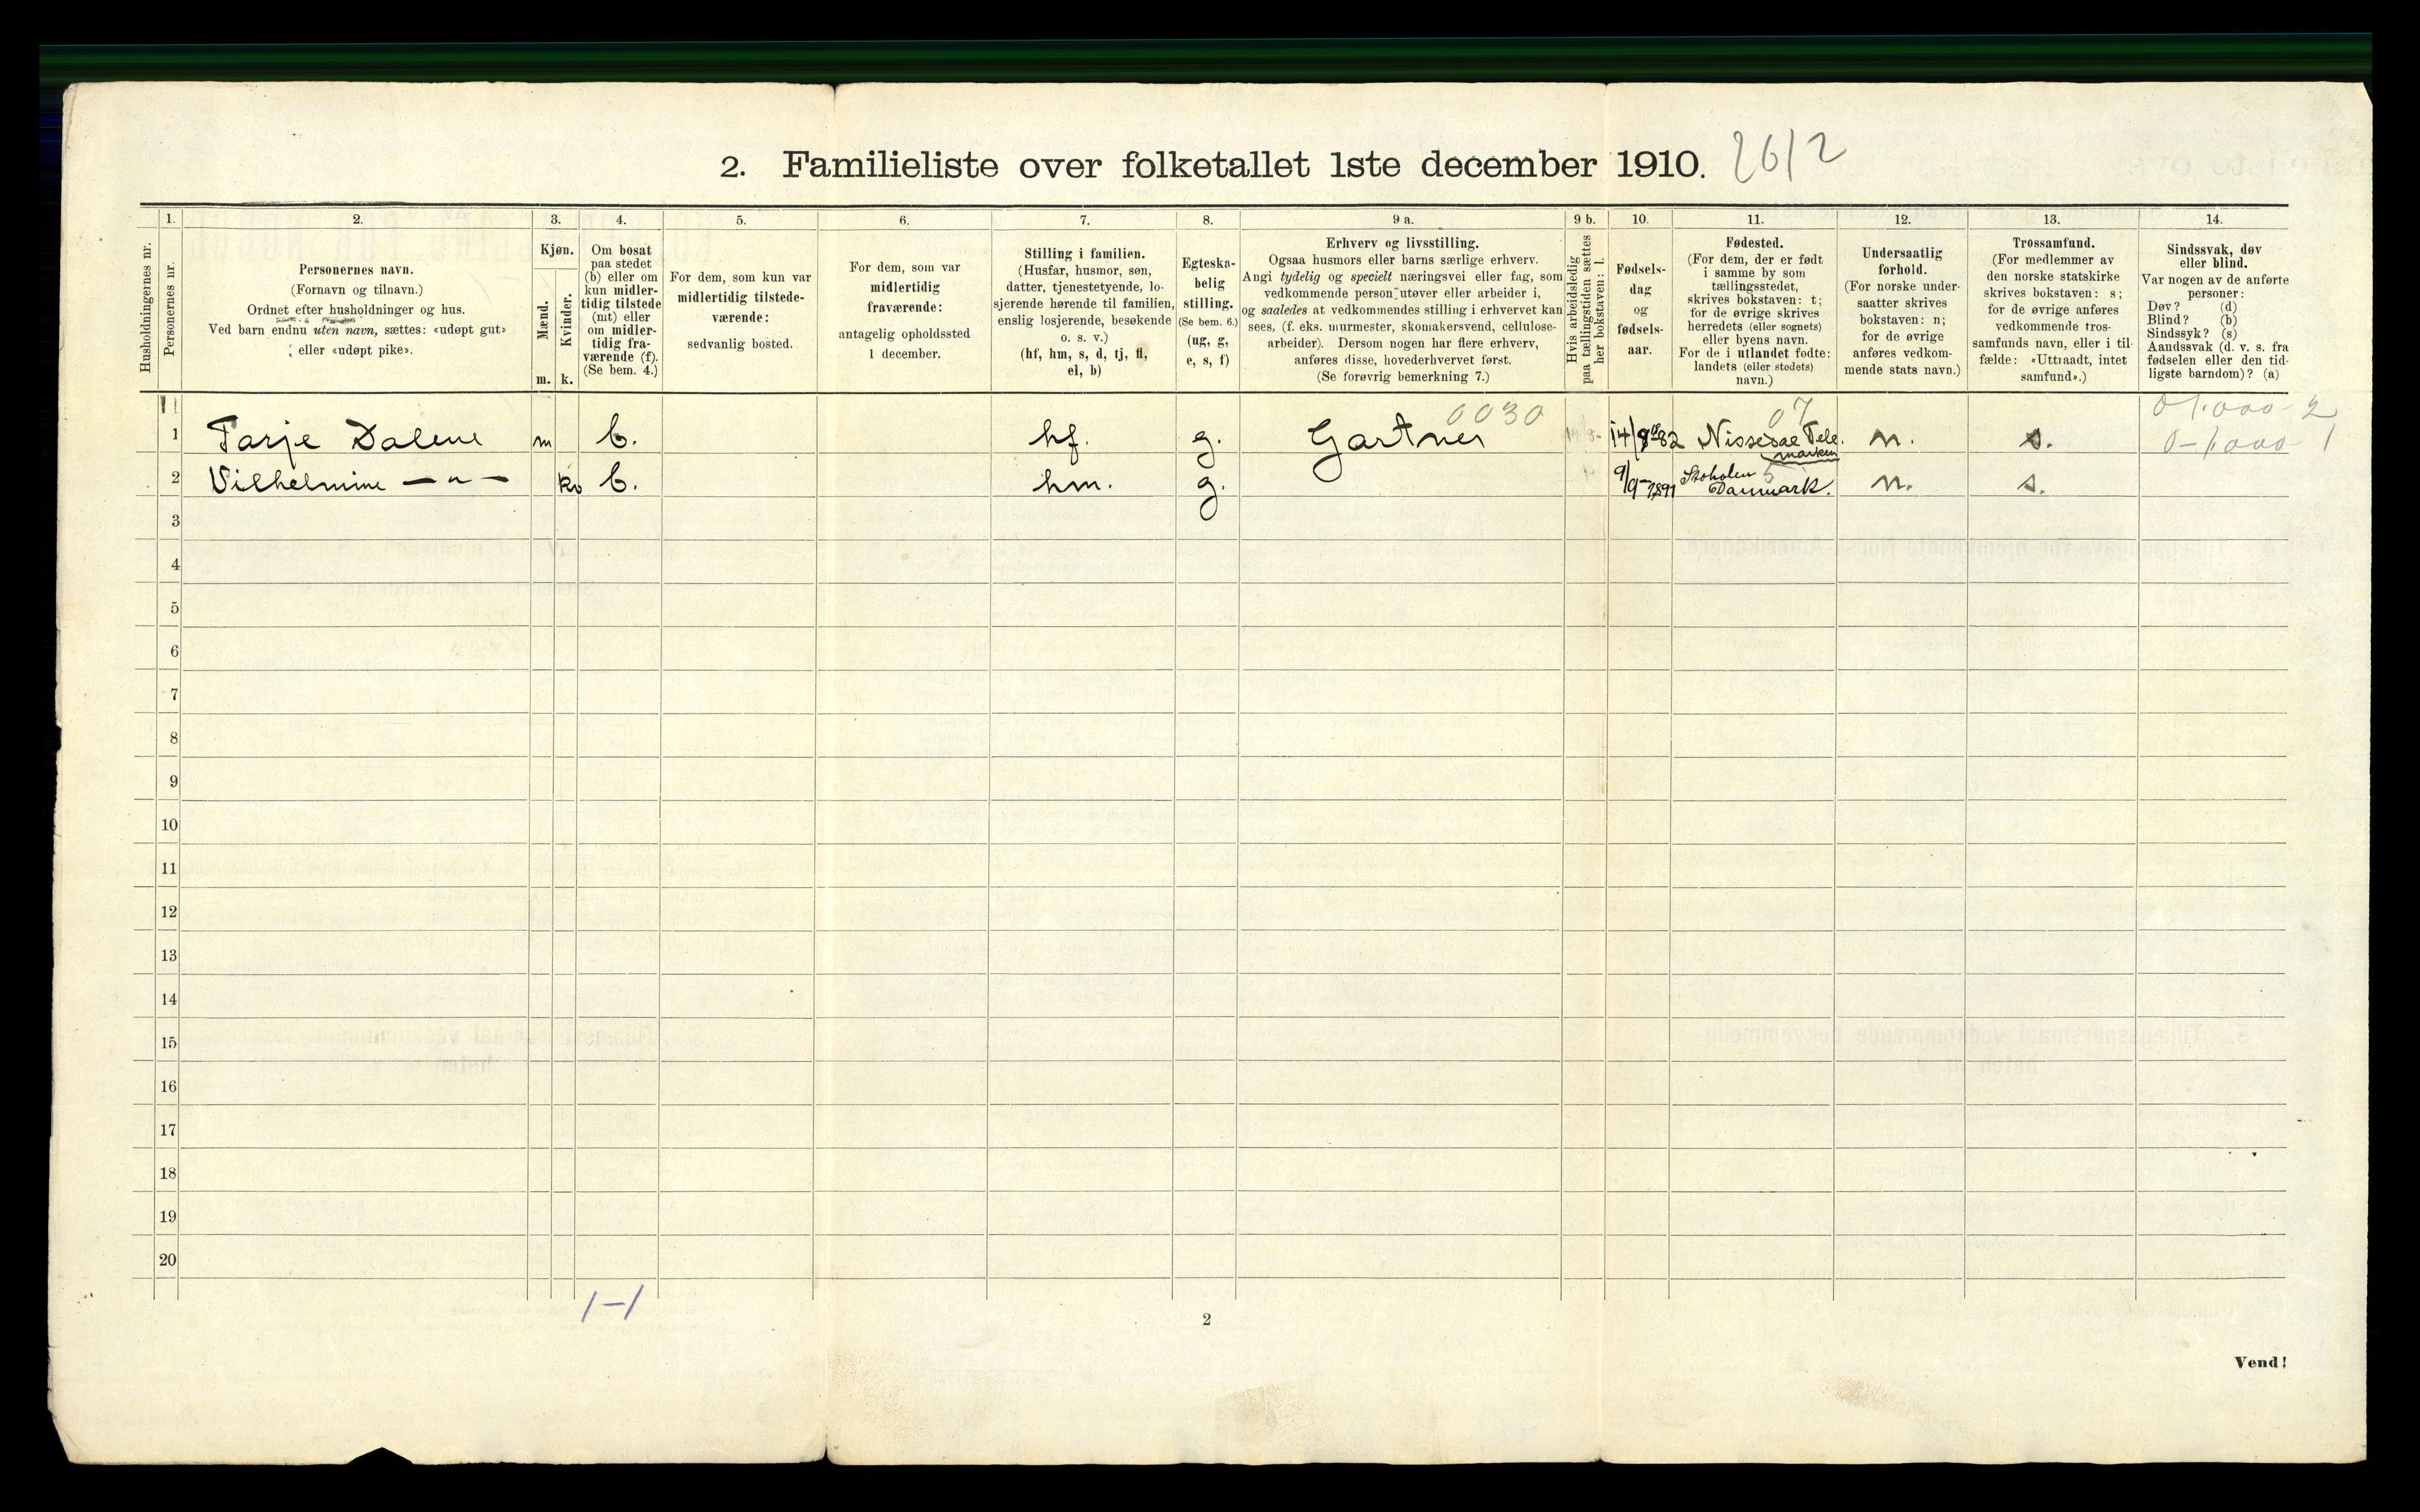 2. Familieliste over folketallet 1ste december 1910. 2612
Husholdningernes nr.
1.
Personernes nr.
2.
Personernes navn.
(Fornavn og tilnavn.)
Ordnet efter husholdninger og hus.
Ved barn endnu uten navn, sættes: «udøpt gut»
eller «udøpt pike».
3.
Kjøn.
Mænd.
Kvinder.
m. k.
4.
Om bosat
paa stedet
(b) eller om
kun midler-
tidig tilstede
(mt) eller
om midler-
tidig fra-
værende (f).
(Se bem. 4.)
5.
For dem, som kun var
midlertidig tilstede-
værende:
sedvanlig bosted.
6.
For dem, som var
midlertidig
fraværende:
antagelig opholdssted
1 december.
7.
Stilling i familien.
(Husfar, husmor, søn,
datter, tjenestetyende, lo-
sjerende hørende til familien,
enslig losjerende, besøkende
o. s. v.)
(hf, hm, s, d, tj, fl,
el, b)
8.
Egteska-
belig
stilling.
(Se bem. 6.)
(ug, g,
e, s, f)
9 a.
Erhverv og livsstilling.
Ogsaa husmors eller barns særlige erhverv.
Angi tydelig og specielt næringsvei eller fag, som
vedkommende person utøver eller arbeider i,
og saaledes at vedkommendes stilling i erhvervet kan
sees, (f. eks. murmester, skomakersvend, cellulose-
arbeider). Dersom nogen har flere erhverv,
anføres disse, hovederhvervet først.
(Se forøvrig bemerkning 7.)
9 b.
Hvis arbeidsledig
paa tællingstiden sættes
her bokstaven: l.
10.
Fødsels-
dag
og
fødsels-
aar.
11.
Fødested.
(For dem, der er født
i samme by som
tællingsstedet,
skrives bokstaven: t;
for de øvrige skrives
herredets (eller sognets)
eller byens navn.
For de i utlandet fødte:
landets (eller stedets)
navn.)
12.
Undersaatlig
forhold.
(For norske under-
saatter skrives
bokstaven: n;
for de øvrige
anføres vedkom-
mende stats navn.)
13.
Trossamfund.
(For medlemmer av
den norske statskirke
skrives bokstaven: s;
for de øvrige anføres
vedkommende tros-
samfunds navn, eller i til-
fælde: «Uttraadt, intet
samfund».)
14.
Sindssvak, døv
eller blind.
Var nogen av de anførte
personer:
Døv? (d)
Blind? (b)
Sindssyk? (s)
Aandssvak (d. v. s. fra
fødselen eller den tid-
ligste barndom)? (a)
0030 07 01.000-2
1 Tarje Dalene m b. hf. g. Gartner 14/9 82 Nissedal Tele- n. s. 0-1.000-1
marken
2 Vilhelmine —"— k b. hm. g. 9/9-1891 Stoholm 5 n. s.
Danmark.
3
4
5
6
7
8
9
10
11
12
13
14
15
16
17
18
19
20
1-1
2
Vend!